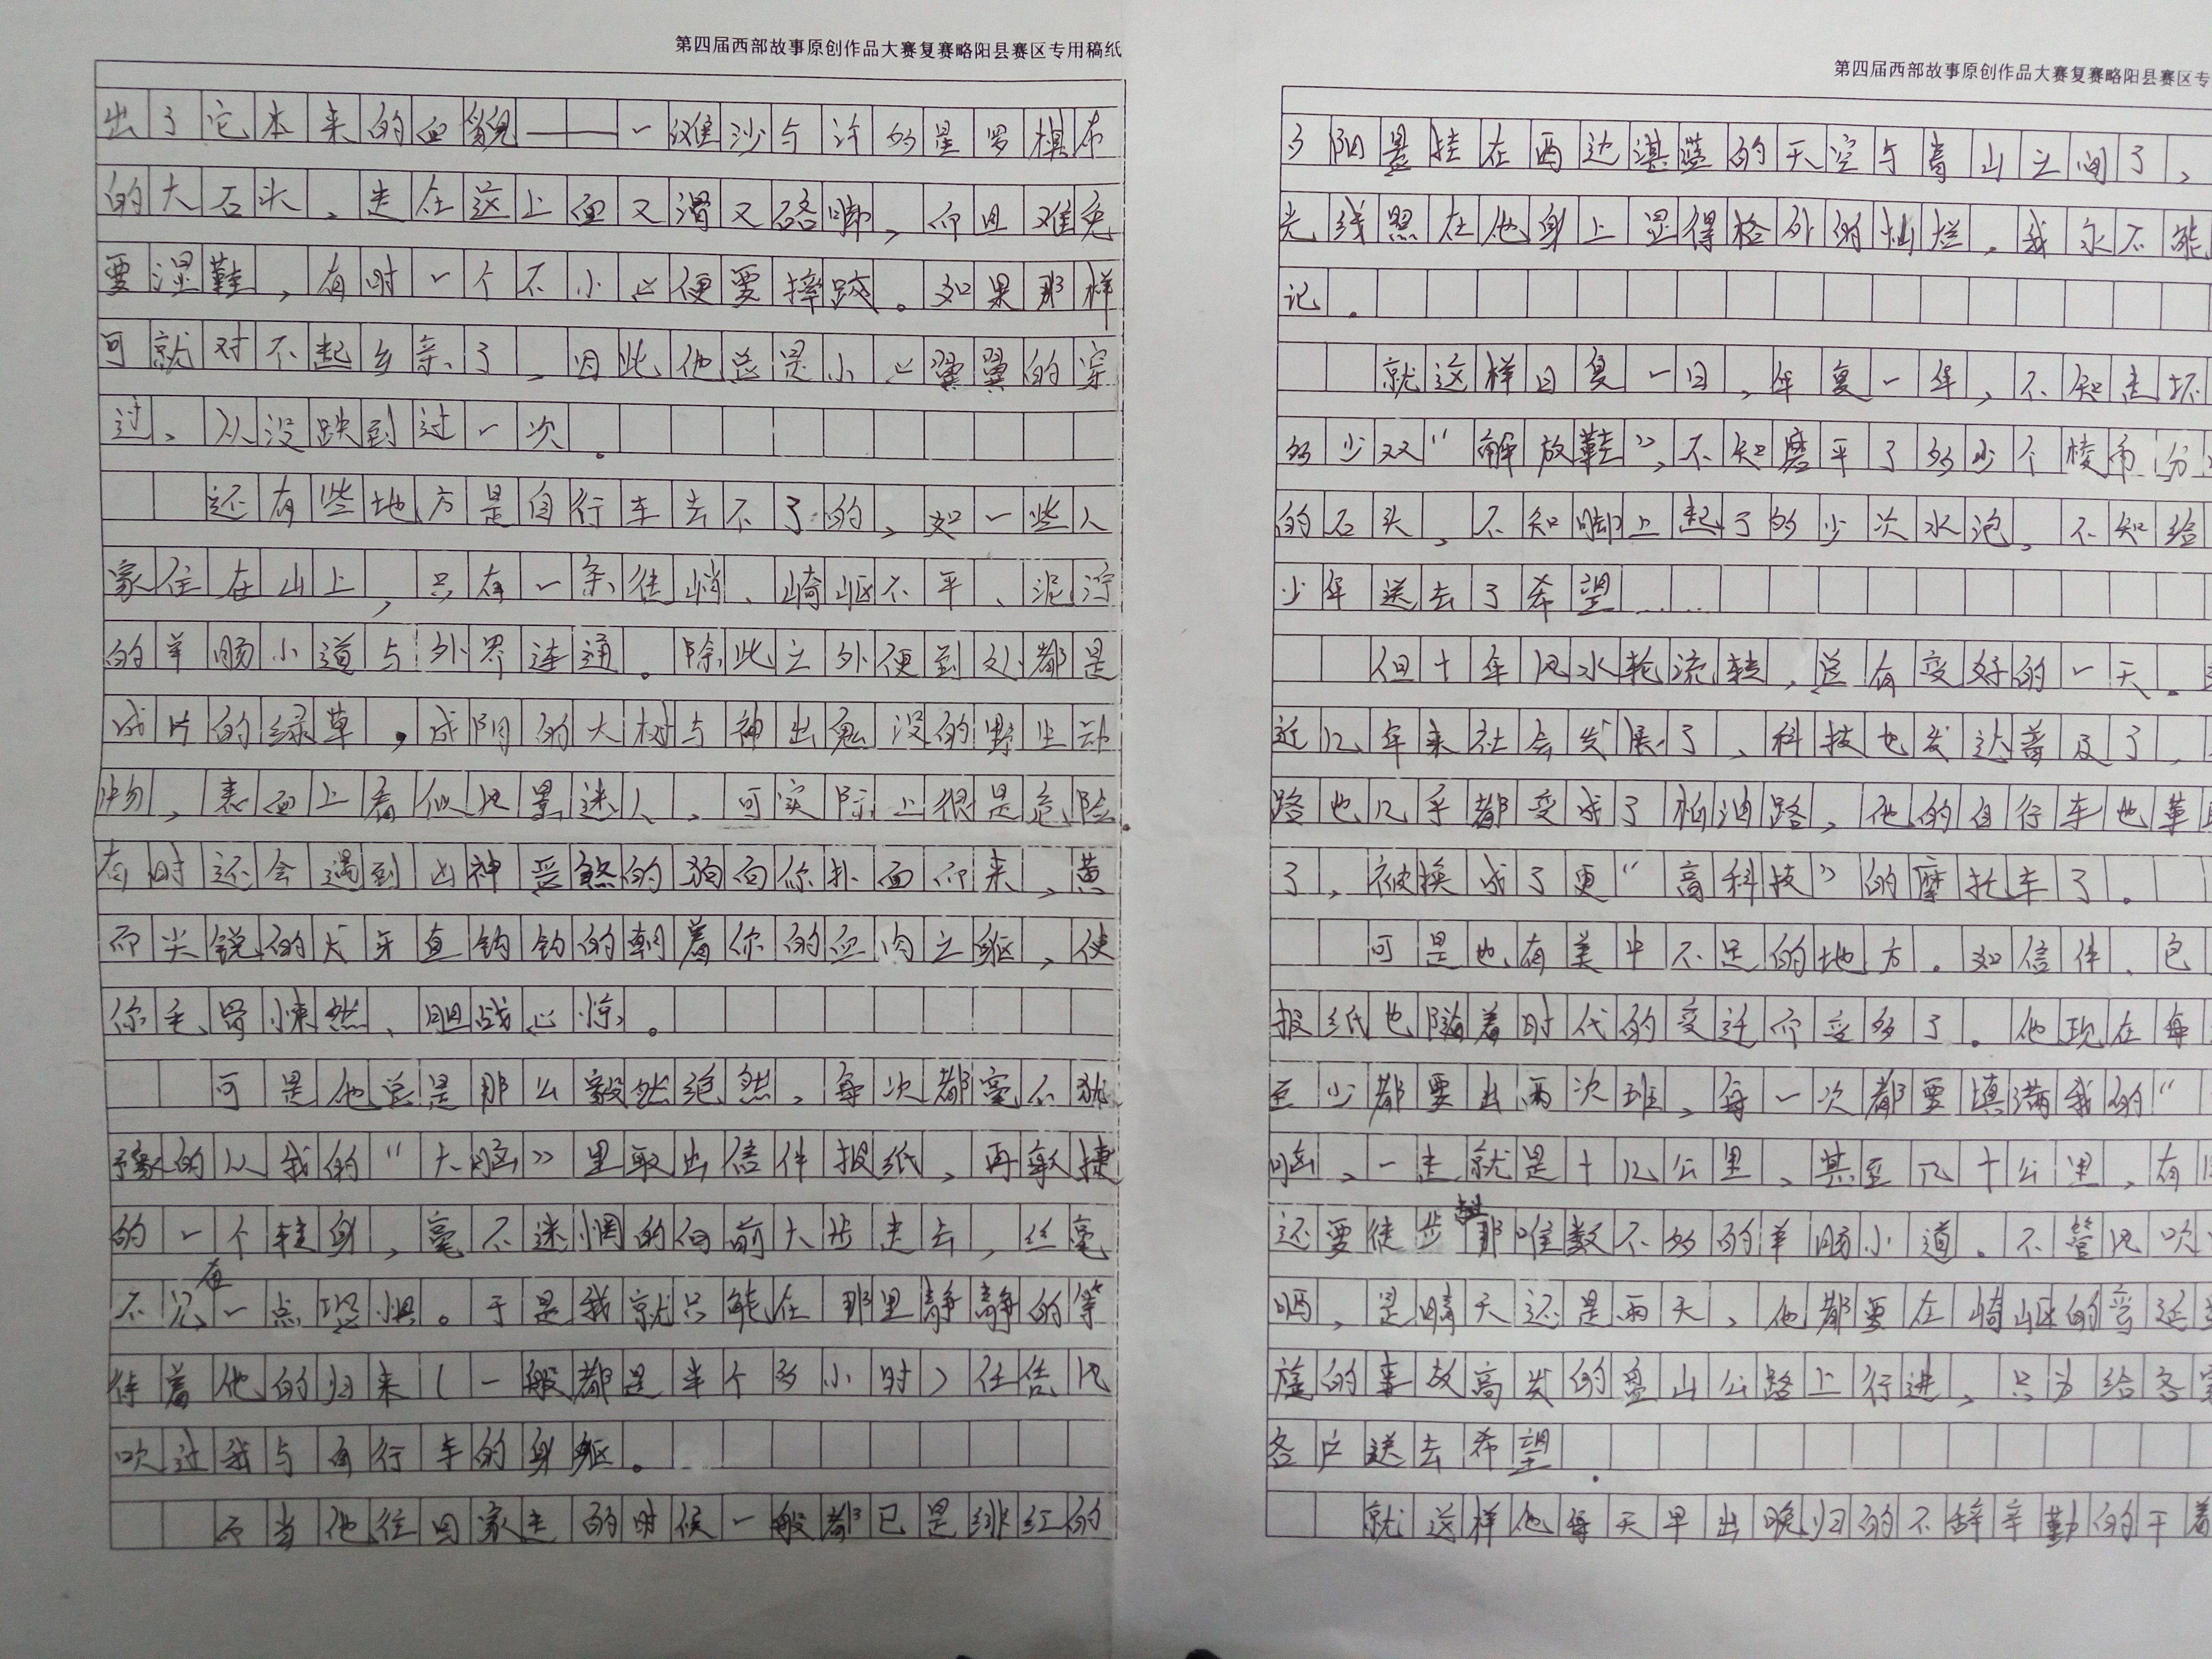 第四届西部故事原创作品大赛复赛略阳县赛区专用稿纸
出了它本来的面貌——一滩沙与许多星罗棋布
的大石头，走在这上面又滑又硌脚，而且难免
要湿鞋，有时一个不小心便要摔跤。如果那样
可就对不起乡亲了，因此他总是小心翼翼的穿
过、从没跌到过一次。
还有些地方是自行车去不了的，如一些人
家住在山上，只有一条陡峭、崎岖不平、泥泞
的羊肠小道与外界连通。除此之外便到处都是
成片的绿草，成阴的大树与神出鬼没的野生动
物，表面上看似风景迷人，可实际上很是危险。
有时还会遇到凶神恶煞的狗向你扑面而来，黄
而尖锐的犬牙直钩钩的朝着你的血肉之躯，使
你毛骨悚然、胆战心惊。
可是他总是那么毅然绝然，每次都毫不犹
豫的从我的“大脑”里取出信件报纸，再敏捷
的一个转身，毫不迷惘的向前大步走去，丝毫
不见有一点恐惧。于是我就只能在那里静静的等
待着他的归来（一般都是半个多小时）任凭风
吹过我与自行车的身躯。
而当他往回家走的时候一般都已是绯红的
第四届西部故事原创作品大赛复赛略阳县赛区专
夕阳悬挂在西边湛蓝的天空与青山之间了，
光线照在他身上显得格外的灿烂，我永不能
记。
就这样日复一日，年复一年，不知走坏
多少双“解放鞋”，不知磨平了多少个棱角分
的石头，不知脚上起了多少次水泡，不知给
少年送去了希望……
但十年风水轮流转，总有变好的一天。
近几年来社会发展了，科技也发达普及了，
路也几乎都变成了柏油路，他的自行车也革
了，被换成了更“高科技”的摩托车了。
可是也有美中不足的地方。如信件、包
报纸也随着时代的变迁而变多了。他现在每
至少都要出两次班，每一次都要填满我的“
脑，一走就是十几公里，甚至几十公里，有
还要徒步走那唯数不多的羊肠小道。不管风吹
晒，是晴天还是雨天，他都要在崎岖的弯延
旋的事故高发的盘山公路上行进，只为给客
各户送去希望。
就这样他每天早出晚归的不辞辛勤的干着